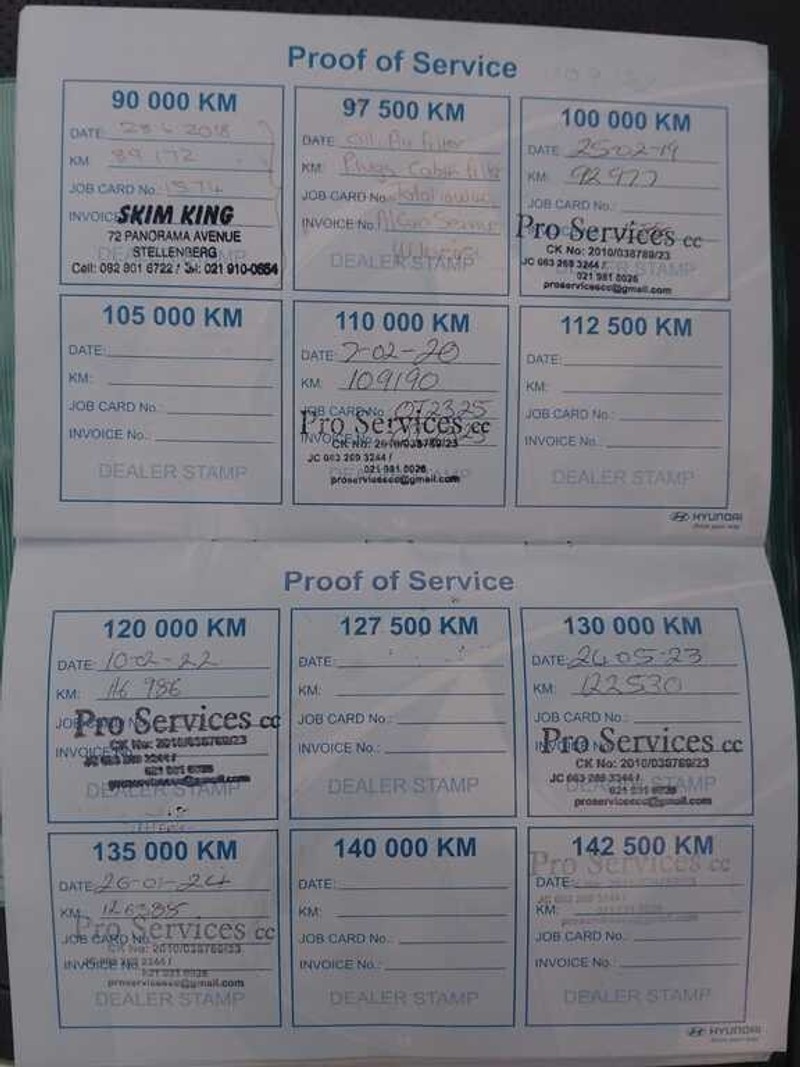 Proof of Service
90 000 KM
DATE: 28 6 2018
KM: 89 172
JOB CARD No. 1574
INVOICE
SKIM KING
72 PANORAMA AVENUE
STELLENBERG
Cell: 082 801 6722 / Tel: 021 910-0554
DEALER STAMP
97 500 KM
DATE: Oil, Air filter
KM: Plugs Cabin filter
JOB CARD No.
INVOICE No.
DEALER STAMP
100 000 KM
DATE: 25-02-19
KM: 92 977
JOB CARD No.:
Pro Services cc
CK No: 2010/038789/23
JC 083 269 3244 /
021 981 0026
proservicescc@gmail.com
STAMP
105 000 KM
DATE:
KM:
JOB CARD No.:
INVOICE No.:
DEALER STAMP
110 000 KM
DATE: 7-02-20
KM: 109190
JOB CARD No. 072325
Pro Services cc
INVOICE No.
CK No: 2010/038789/23
JC 083 269 3244 /
021 981 0026
proservicescc@gmail.com
112 500 KM
DATE:
KM:
JOB CARD No.:
INVOICE No.:
DEALER STAMP
HYUNDAI
Proof of Service
120 000 KM
DATE: 10-02-22
KM: 116 986
JOB
Pro Services cc
INVOICE No.
CK No: 2010/038789/23
DEALER STAMP
127 500 KM
DATE:
KM:
JOB CARD No.:
INVOICE No.:
DEALER STAMP
130 000 KM
DATE: 24-05-23
KM: 122530
JOB CARD No.:
Pro Services cc
CK No: 2010/038789/23
JC 083 269 3244 /
021 981 0026
proservicescc@gmail.com
135 000 KM
DATE: 26-01-24
KM: 126385
Pro Services cc
JOB CARD No.
CK No: 2010/038789/23
INVOICE No.:
021 981 0026
proservicescc@gmail.com
DEALER STAMP
140 000 KM
DATE:
KM:
JOB CARD No.:
INVOICE No.:
DEALER STAMP
142 500 KM
Pro Services cc
DATE:
KM:
JOB CARD No.:
INVOICE No.:
DEALER STAMP
HYUNDAI